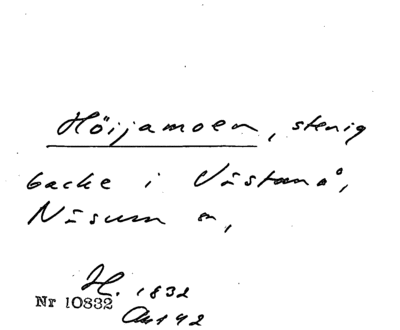 Höijamoen, stenig
backe i Västanå,
Näsum sn,
H. 1832
Nr 10832